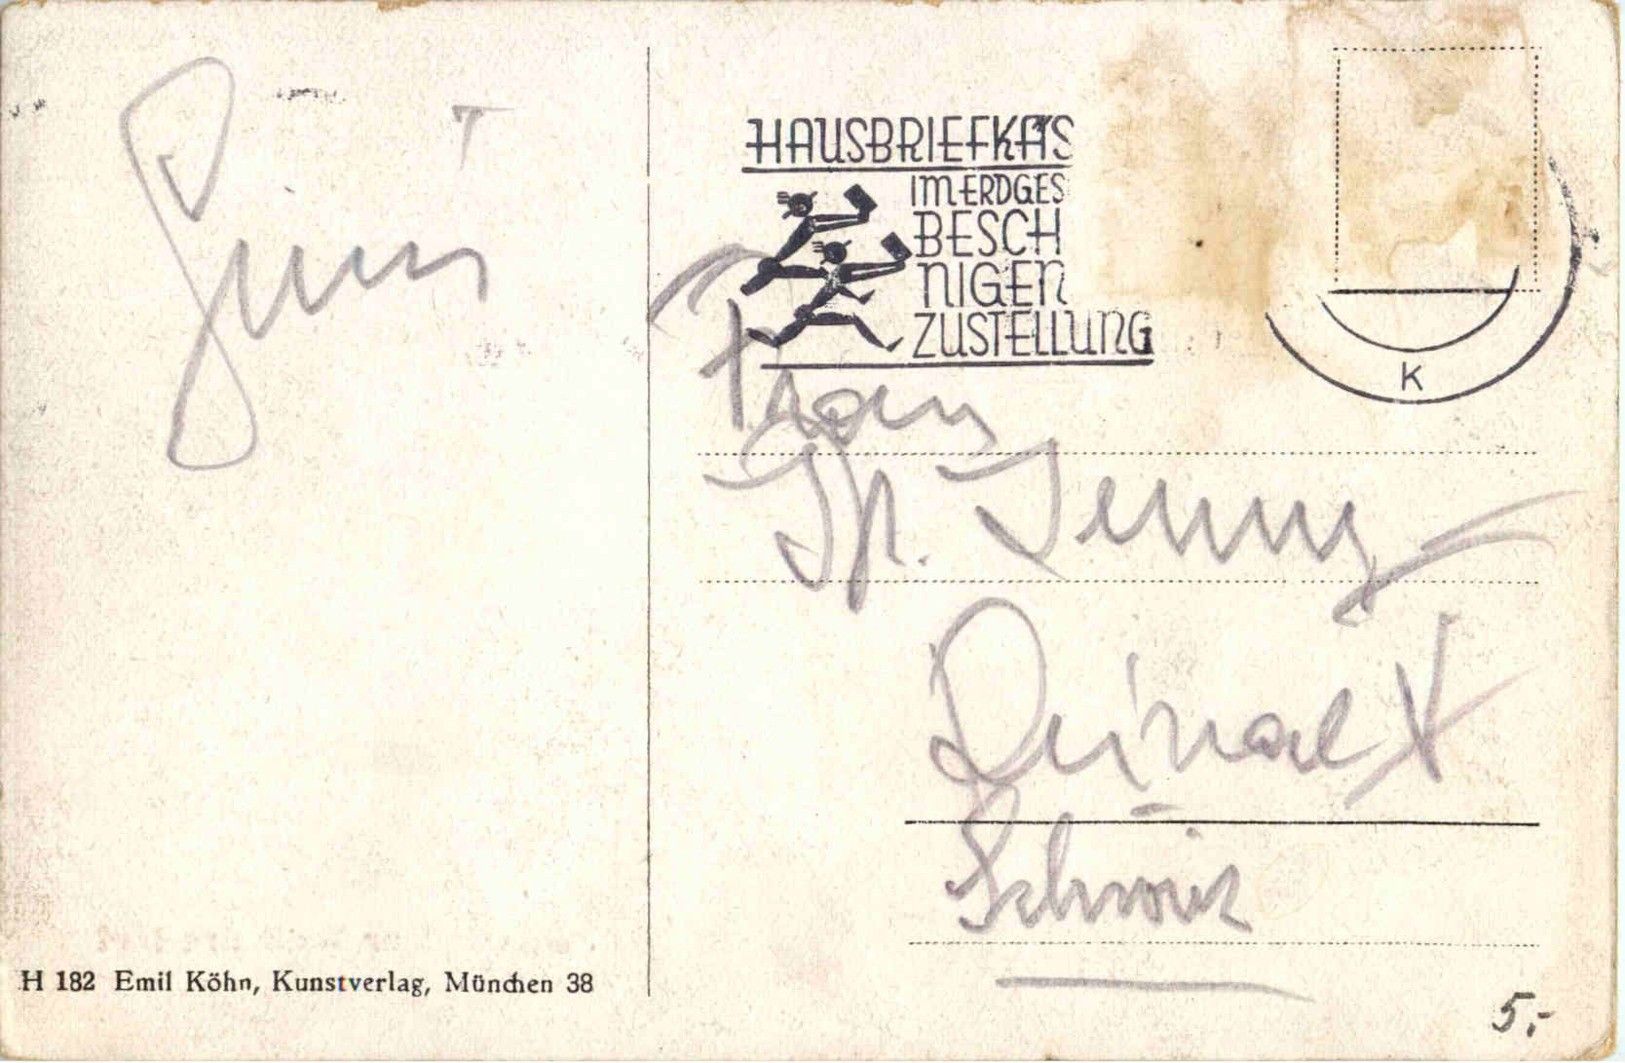 HAUSBRIEFKÄS
IM ERDGES
BESCH
NIGEN
ZUSTELLUNG
K
Frau
Jenny
Reinach
Schweiz
H 182 Emil Köhn, Kunstverlag, München 38
5.-